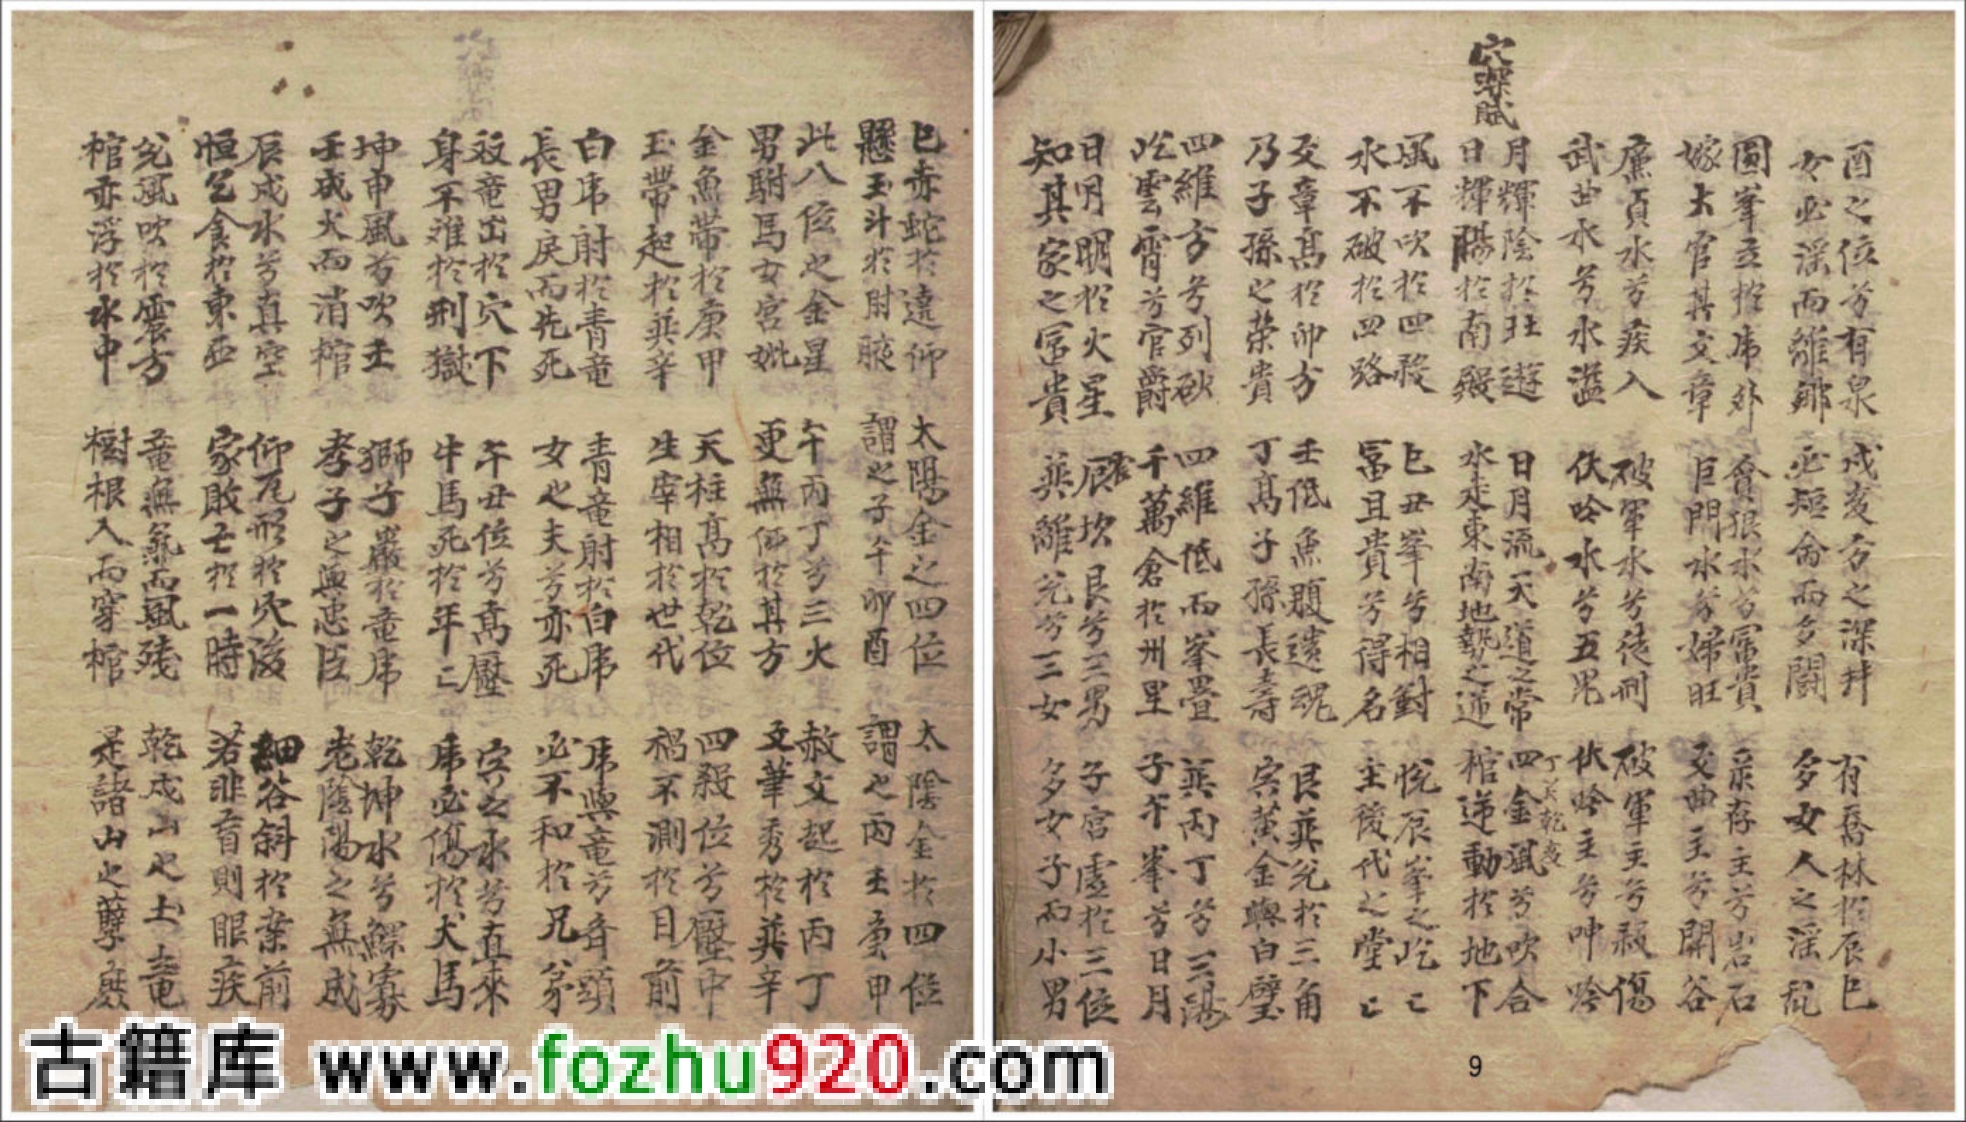 穴深賦
酉之位兮有泉
女必淫而離鄉
戌亥方之深井
必短命而多鬪
有喬林於辰巳
多女人之淫乱
圓峯立於庫外
嫁大官其文章
貪狼水兮富貴
巨門水兮婦旺
祿存主兮岩石
文曲主兮開谷
廉貞水兮疾入
武曲水兮水溢
破軍水兮徒刑
伏吟水兮五鬼
破軍主兮殺傷
伏吟主兮呻吟
月輝陰於狂遊
日輝陽於南殿
日月流天道之常
水走東南地勢之逆
四金風兮吹合
丁癸乾亥
棺逆動於地下
風不吹於四殺
水不破於四路
巳丑峯兮相對
富且貴兮得名
悅辰峯之屹屹
主後代之堂堂
文章高於卯方
乃子孫之榮貴
壬低魚腹遺魂
丁高子孫長壽
艮巽兌於三角
宾黃金與白璧
四維方兮列砂
屹雲霄兮官爵
四維低而峯疊
千萬倉於州里
巽丙丁兮三陽
子午峯兮日月
日月明於火星
知其家之富貴
辰坎艮兮三男
巽離兌兮三女
子宮虛於三位
多女子而小男
巳赤蛇於遠仰
懸玉斗於肘腋
太陽金之四位
謂之子午卯酉
太陰金於四位
謂之丙壬庚甲
此八位之金星
男駙馬女宮妣
午丙丁兮三火
更無仰於其方
赦文起於丙丁
文筆秀於巽辛
金魚帶於庚甲
玉帶起於巽辛
天柱高於乾位
生宰相於世代
四殺位兮壓中
禍不測於目前
白庫射於青竜
長男戾而先死
青竜射於白庫
女之夫兮亦死
庫與竜兮齊頭
必不和於兄弟
殺竜出於穴下
身不離於刑獄
午丑位兮高壓
牛馬死於年年
宾之水兮直來
庫必傷於犬馬
坤申風兮吹壬
壬戌火而消棺
獅子巖於竜庫
孝子之與忠臣
乾坤水兮鰥寡
老陰陽之無成
辰戌水兮真空
恒乞食於東西
仰瓦形於穴後
家敗亡於一時
細谷斜於案前
若非盲則眼疾
兌風吹於震方
棺亦浮於水中
竜無氣而風殘
樹根入而穿棺
乾戌山之土竜
是諸山之孽
古籍库 www.fozhu920.com
9